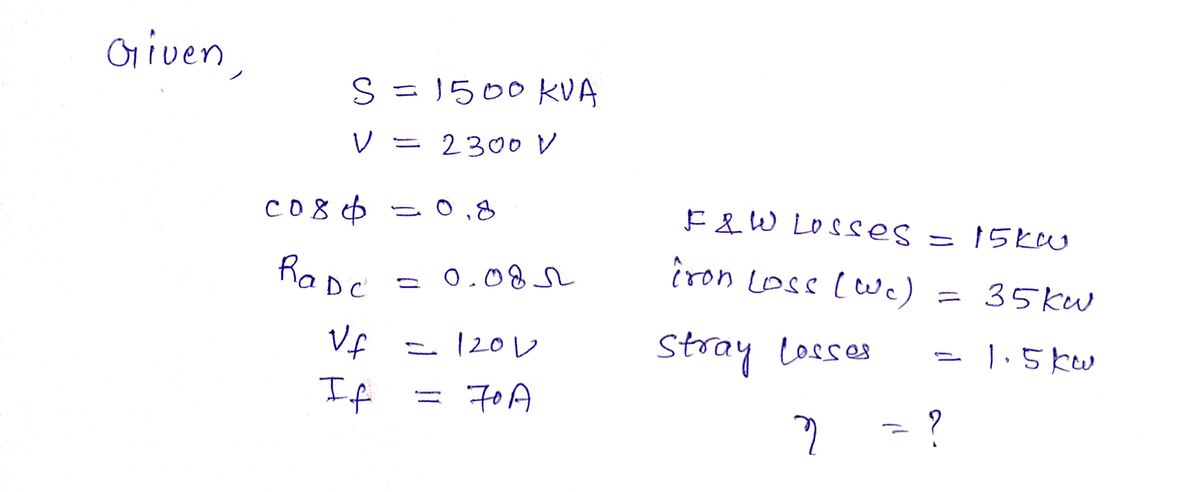 Given,
S = 1500 KVA
V = 2300 V
cos ϕ = 0.8
Ra DC = 0.08 Ω
Vf = 120V
If = 70A
F & W Losses = 15kw
iron Loss (Wc) = 35kw
Stray losses = 1.5kw
η = ?